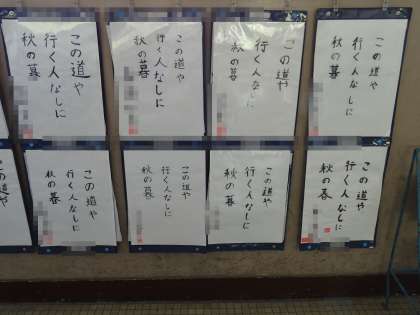 この道や
行く人なしに
秋の暮
この道や
行く人なしに
秋の暮
この道や
行く人なしに
秋の暮
この道や
行く人なしに
秋の暮
この道や
行く人なしに
秋の暮
この道や
行く人なしに
秋の暮
この道や
行く人なしに
秋の暮
この道や
行く人なしに
秋の